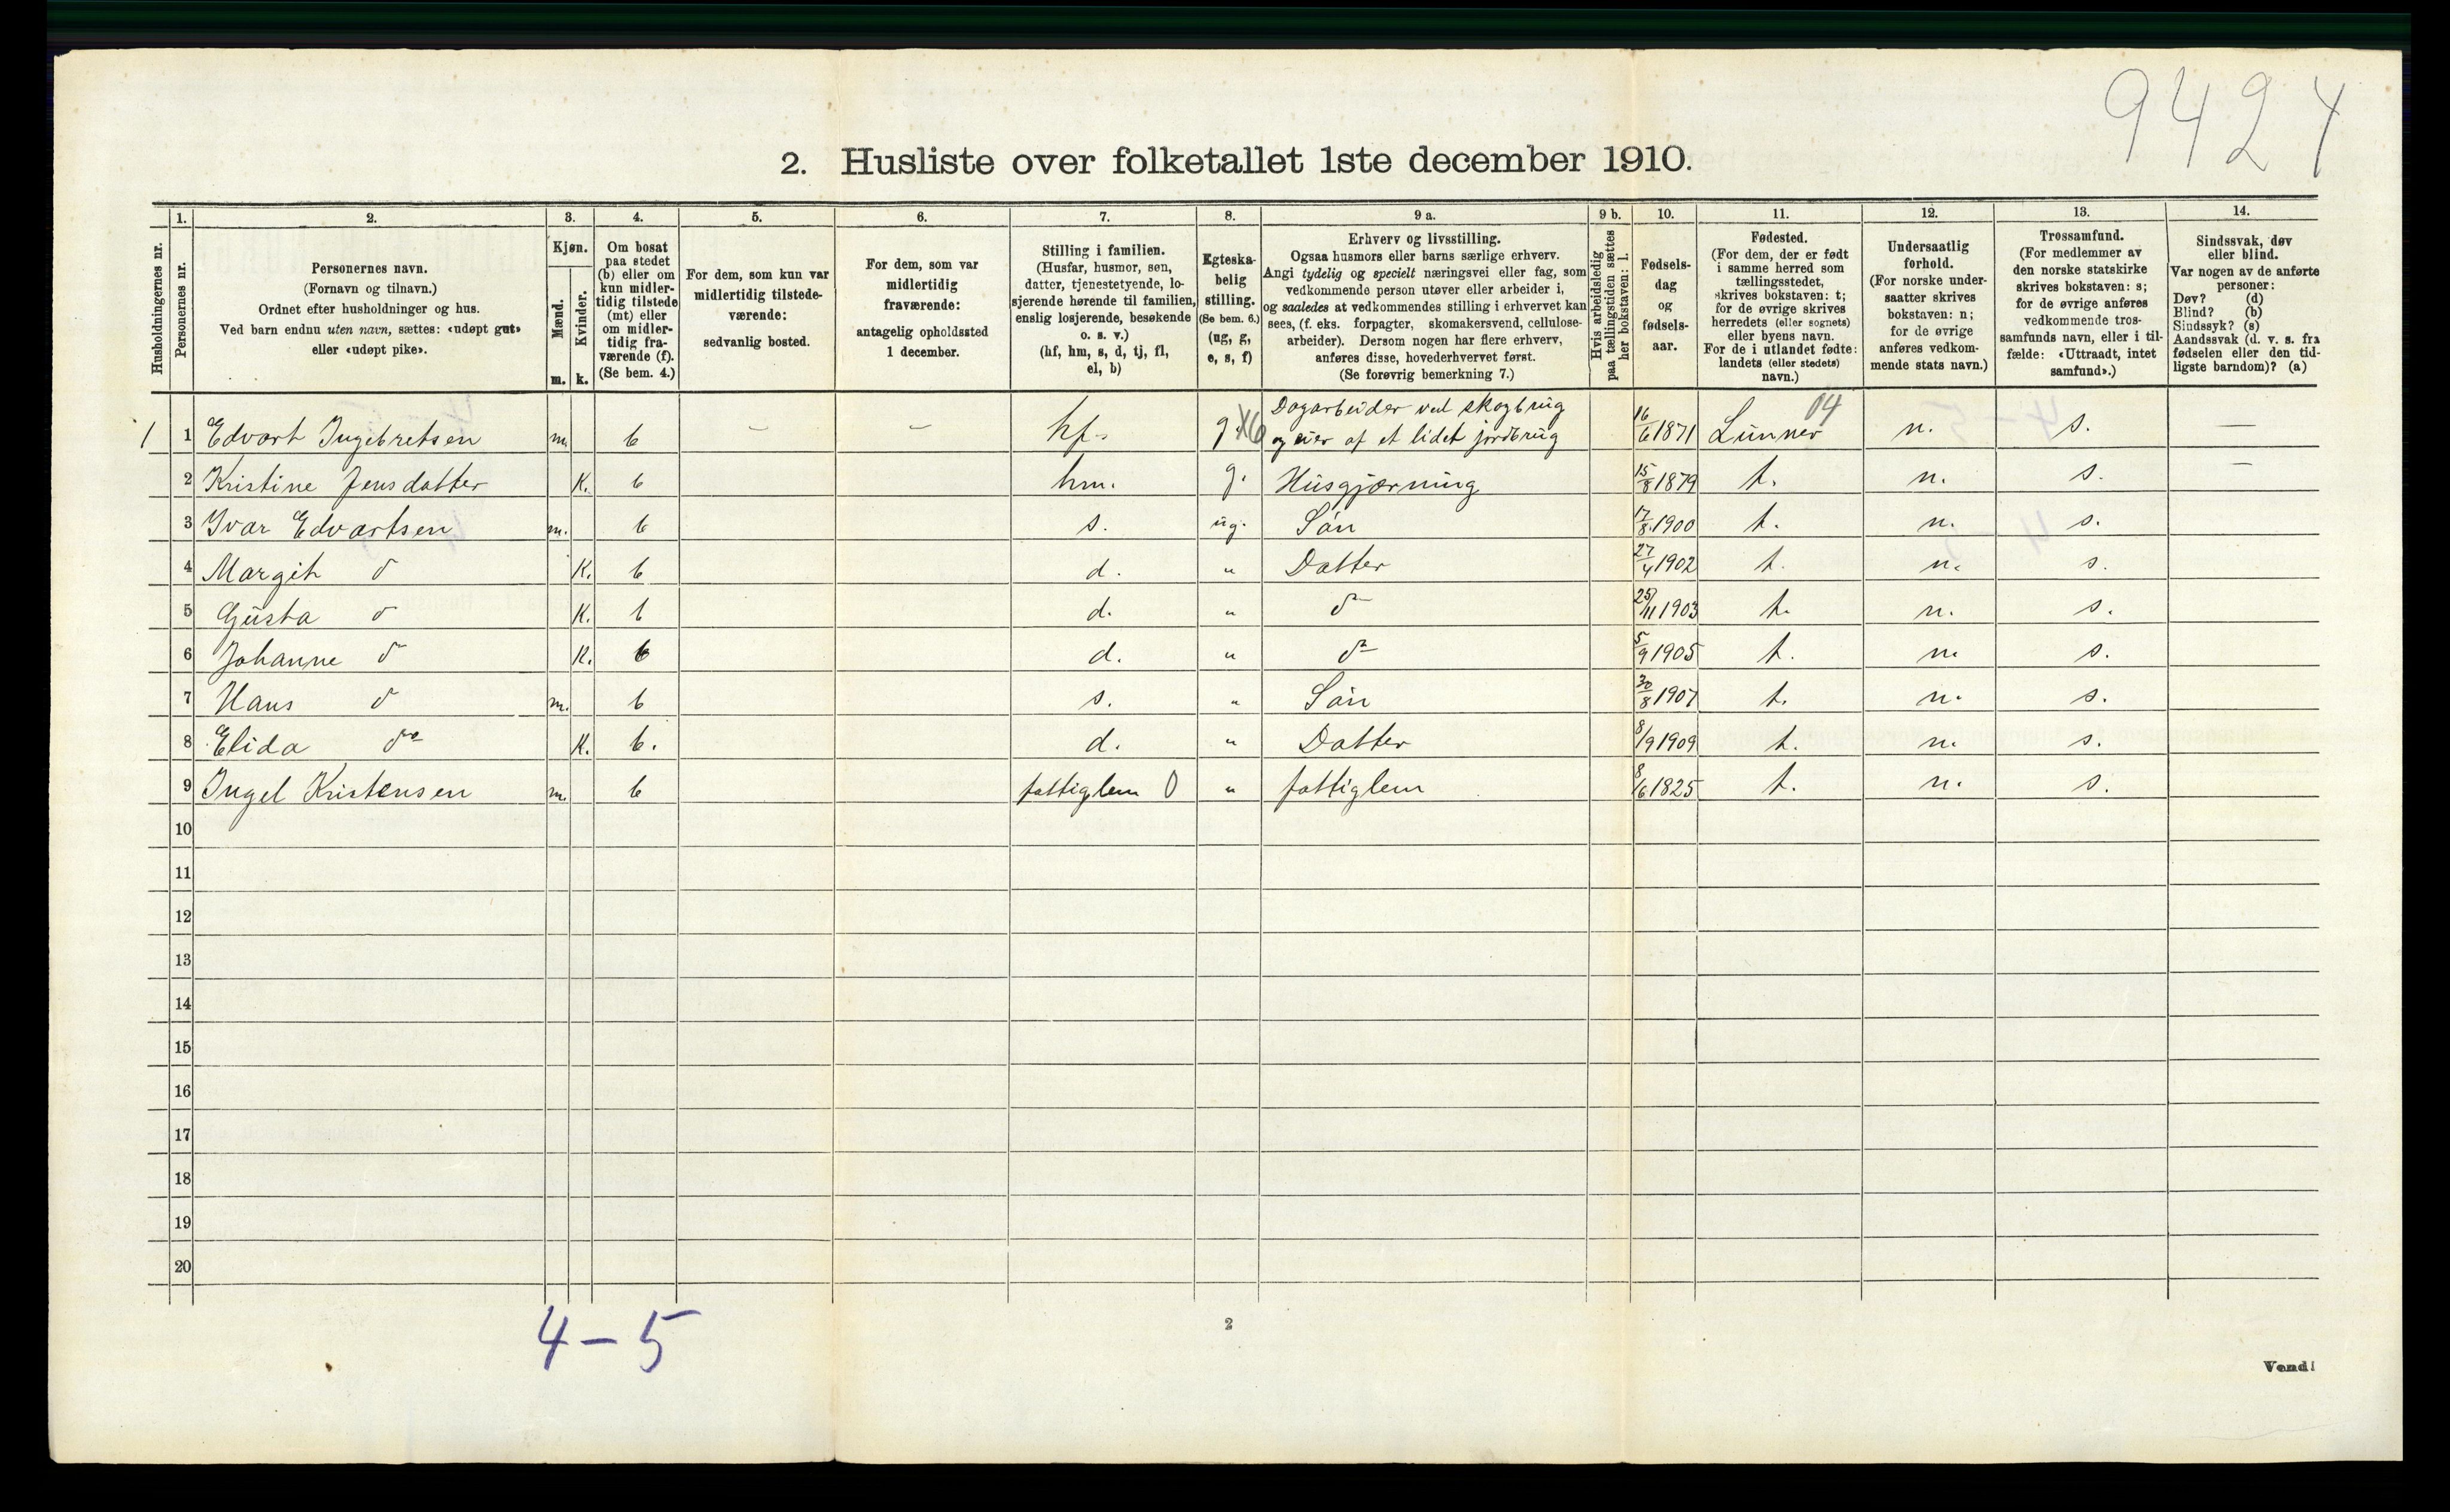 9424
2. Husliste over folketallet 1ste december 1910.
Husholdningernes nr.
1.
Personernes nr.
2.
Personernes navn.
(Fornavn og tilnavn.)
Ordnet efter husholdninger og hus.
Ved barn endnu uten navn, sættes: «udøpt gut»
eller «udøpt pike».
3.
Kjøn.
Mænd.
m.
Kvinder.
k.
4.
Om bosat
paa stedet
(b) eller om
kun midler-
tidig tilstede
(mt) eller
om midler-
tidig fra-
værende (f).
(Se bem. 4.)
5.
For dem, som kun var
midlertidig tilstede-
værende:
sedvanlig bosted.
6.
For dem, som var
midlertidig
fraværende:
antagelig opholdssted
1 december.
7.
Stilling i familien.
(Husfar, husmor, søn,
datter, tjenestetyende, lo-
sjerende hørende til familien,
enslig losjerende, besøkende
o. s. v.)
(hf, hm, s, d, tj, fl,
el, b)
8.
Egteska-
belig
stilling.
(Se bem. 6.)
(ug, g,
e, s, f)
9 a.
Erhverv og livsstilling.
Ogsaa husmors eller barns særlige erhverv.
Angi tydelig og specielt næringsvei eller fag, som
vedkommende person utøver eller arbeider i,
og saaledes at vedkommendes stilling i erhvervet kan
sees, (f. eks. forpagter, skomakersvend, cellulose-
arbeider). Dersom nogen har flere erhverv,
anføres disse, hovederhvervet først.
(Se forøvrig bemerkning 7.)
9 b.
Hvis arbeidsledig
paa tællingstiden sættes
her bokstaven: l.
10.
Fødsels-
dag
og
fødsels-
aar.
11.
Fødested.
(For dem, der er født
i samme herred som
tællingsstedet,
skrives bokstaven: t;
for de øvrige skrives
herredets (eller sognets)
eller byens navn.
For de i utlandet fødte:
landets (eller stedets)
navn.)
12.
Undersaatlig
forhold.
(For norske under-
saatter skrives
bokstaven: n;
for de øvrige
anføres vedkom-
mende stats navn.)
13.
Trossamfund.
(For medlemmer av
den norske statskirke
skrives bokstaven: s;
for de øvrige anføres
vedkommende tros-
samfunds navn, eller i til-
fælde: «Uttraadt, intet
samfund».)
14.
Sindssvak, døv
eller blind.
Var nogen av de anførte
personer:
Døv? (d)
Blind? (b)
Sindssyk? (s)
Aandssvak (d. v. s. fra
fødselen eller den tid-
ligste barndom)? (a)
1 1 Edvart Ingebretsen m. b – – hf. g. X6 Dagarbeider ved skogbrug
og eier af et lidet jordbrug 16/6 1871 Lunner 04 n. s. —
2 Kristine Jensdatter K. b hm. g. Husgjærning 15/8 1879 t. n. s. —
3 Ivar Edvartsen m. b s. ug. Søn 17/8 1900 t. n. s.
4 Margit do K. b d. " Datter 27/4 1902 t. n. s.
5 Gusta do K. b d. " do 25/11 1903 t. n. s.
6 Johanne do K. b d. " do 5/9 1905 t. n. s.
7 Hans do m. b s. " Søn 30/8 1907 t. n. s.
8 Elida do K. b. d. " Datter 8/9 1909 t. n. s.
9 Ingel Kristensen m. b fattiglem 0 " fattiglem 8/6 1825 t. n. s.
10
11
12
13
14
15
16
17
18
19
20
4 – 5
2
Vend!